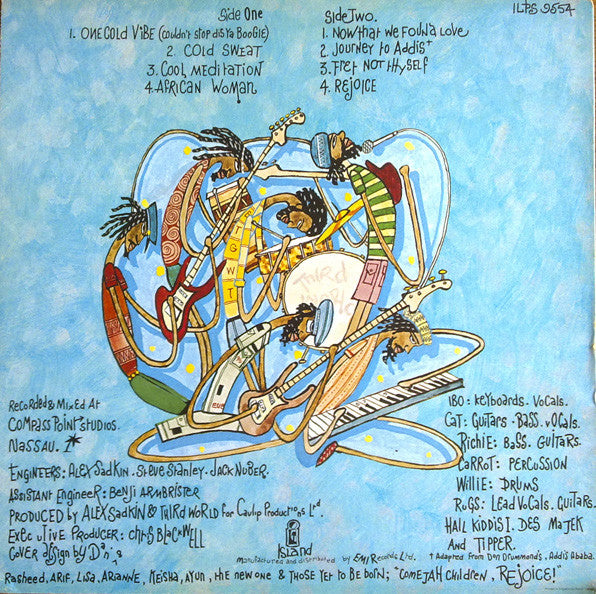 Side One
1. ONE COLD VIBE (Couldn't stop dis Ya Boogie)
2. COLD SWEAT
3. Cool Meditation
4. African Woman
Side Two.
1. Now that we found a Love
2. Journey to Addis†
3. Fret Not Thyself
4. Rejoice
ILPS 9554
GWT
Third
World
Recorded & Mixed At
Compass Point Studios.
Nassau.
Engineers: Alex Sadkin. Steve Stanley. Jack Nuber.
Assistant Engineer: Benji Armbrister
Produced by Alex Sadkin & Third World for Caulip Productions Ltd.
Executive Producer: Chris Blackwell
Cover design by
Island
Manufactured and distributed by EMI Records Ltd.
Ibo: Keyboards. Vocals.
Cat: Guitars. Bass. Vocals.
Richie: Bass. Guitars.
Carrot: Percussion
Willie: Drums
Rugs: Lead Vocals. Guitars.
Hail Kiddis I. Des Majek
And Tipper.
† Adapted from Don Drummond's. Addis Ababa.
Rasheed, Arif, Lisa, Arianne, Keisha, Ayun, the new one & those yet to be born; "Come Jah Children, Rejoice!"